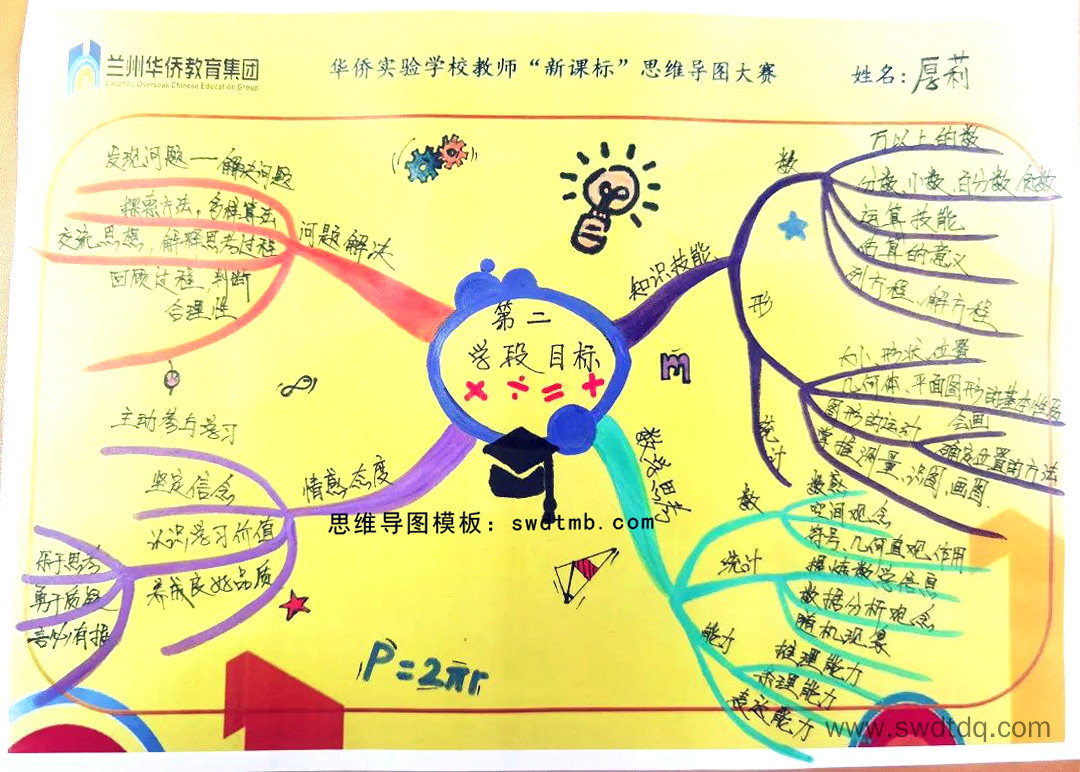 兰州华侨教育集团
Lanzhou Overseas Chinese Education Group
华侨实验学校教师“新课标”思维导图大赛
姓名：厚莉
第二
学段目标
× ÷ = +
知识技能
数
万以上的数
分数、小数、百分数、负数
运算技能
估算的意义
列方程、解方程
形
大小、形状、位置
几何体、平面图形的基本性质
图形的运动
会画
确定位置的方法
掌握测量、识图、画图
统计
数学思考
数
数感
空间观念
符号、几何直观、作用
统计
提炼数学信息
数据分析观念
随机现象
能力
推理能力
条理能力
表达能力
问题解决
发现问题—解决问题
探索方法，多样算法
交流思想，解释思考过程
回顾过程，判断
合理性
情感态度
主动参与学习
坚定信念
认识学习价值
养成良好品质
乐于思考
勇于质疑
言必有据
m
P=2πr
思维导图模板：swdtmb.com
www.swdtdq.com